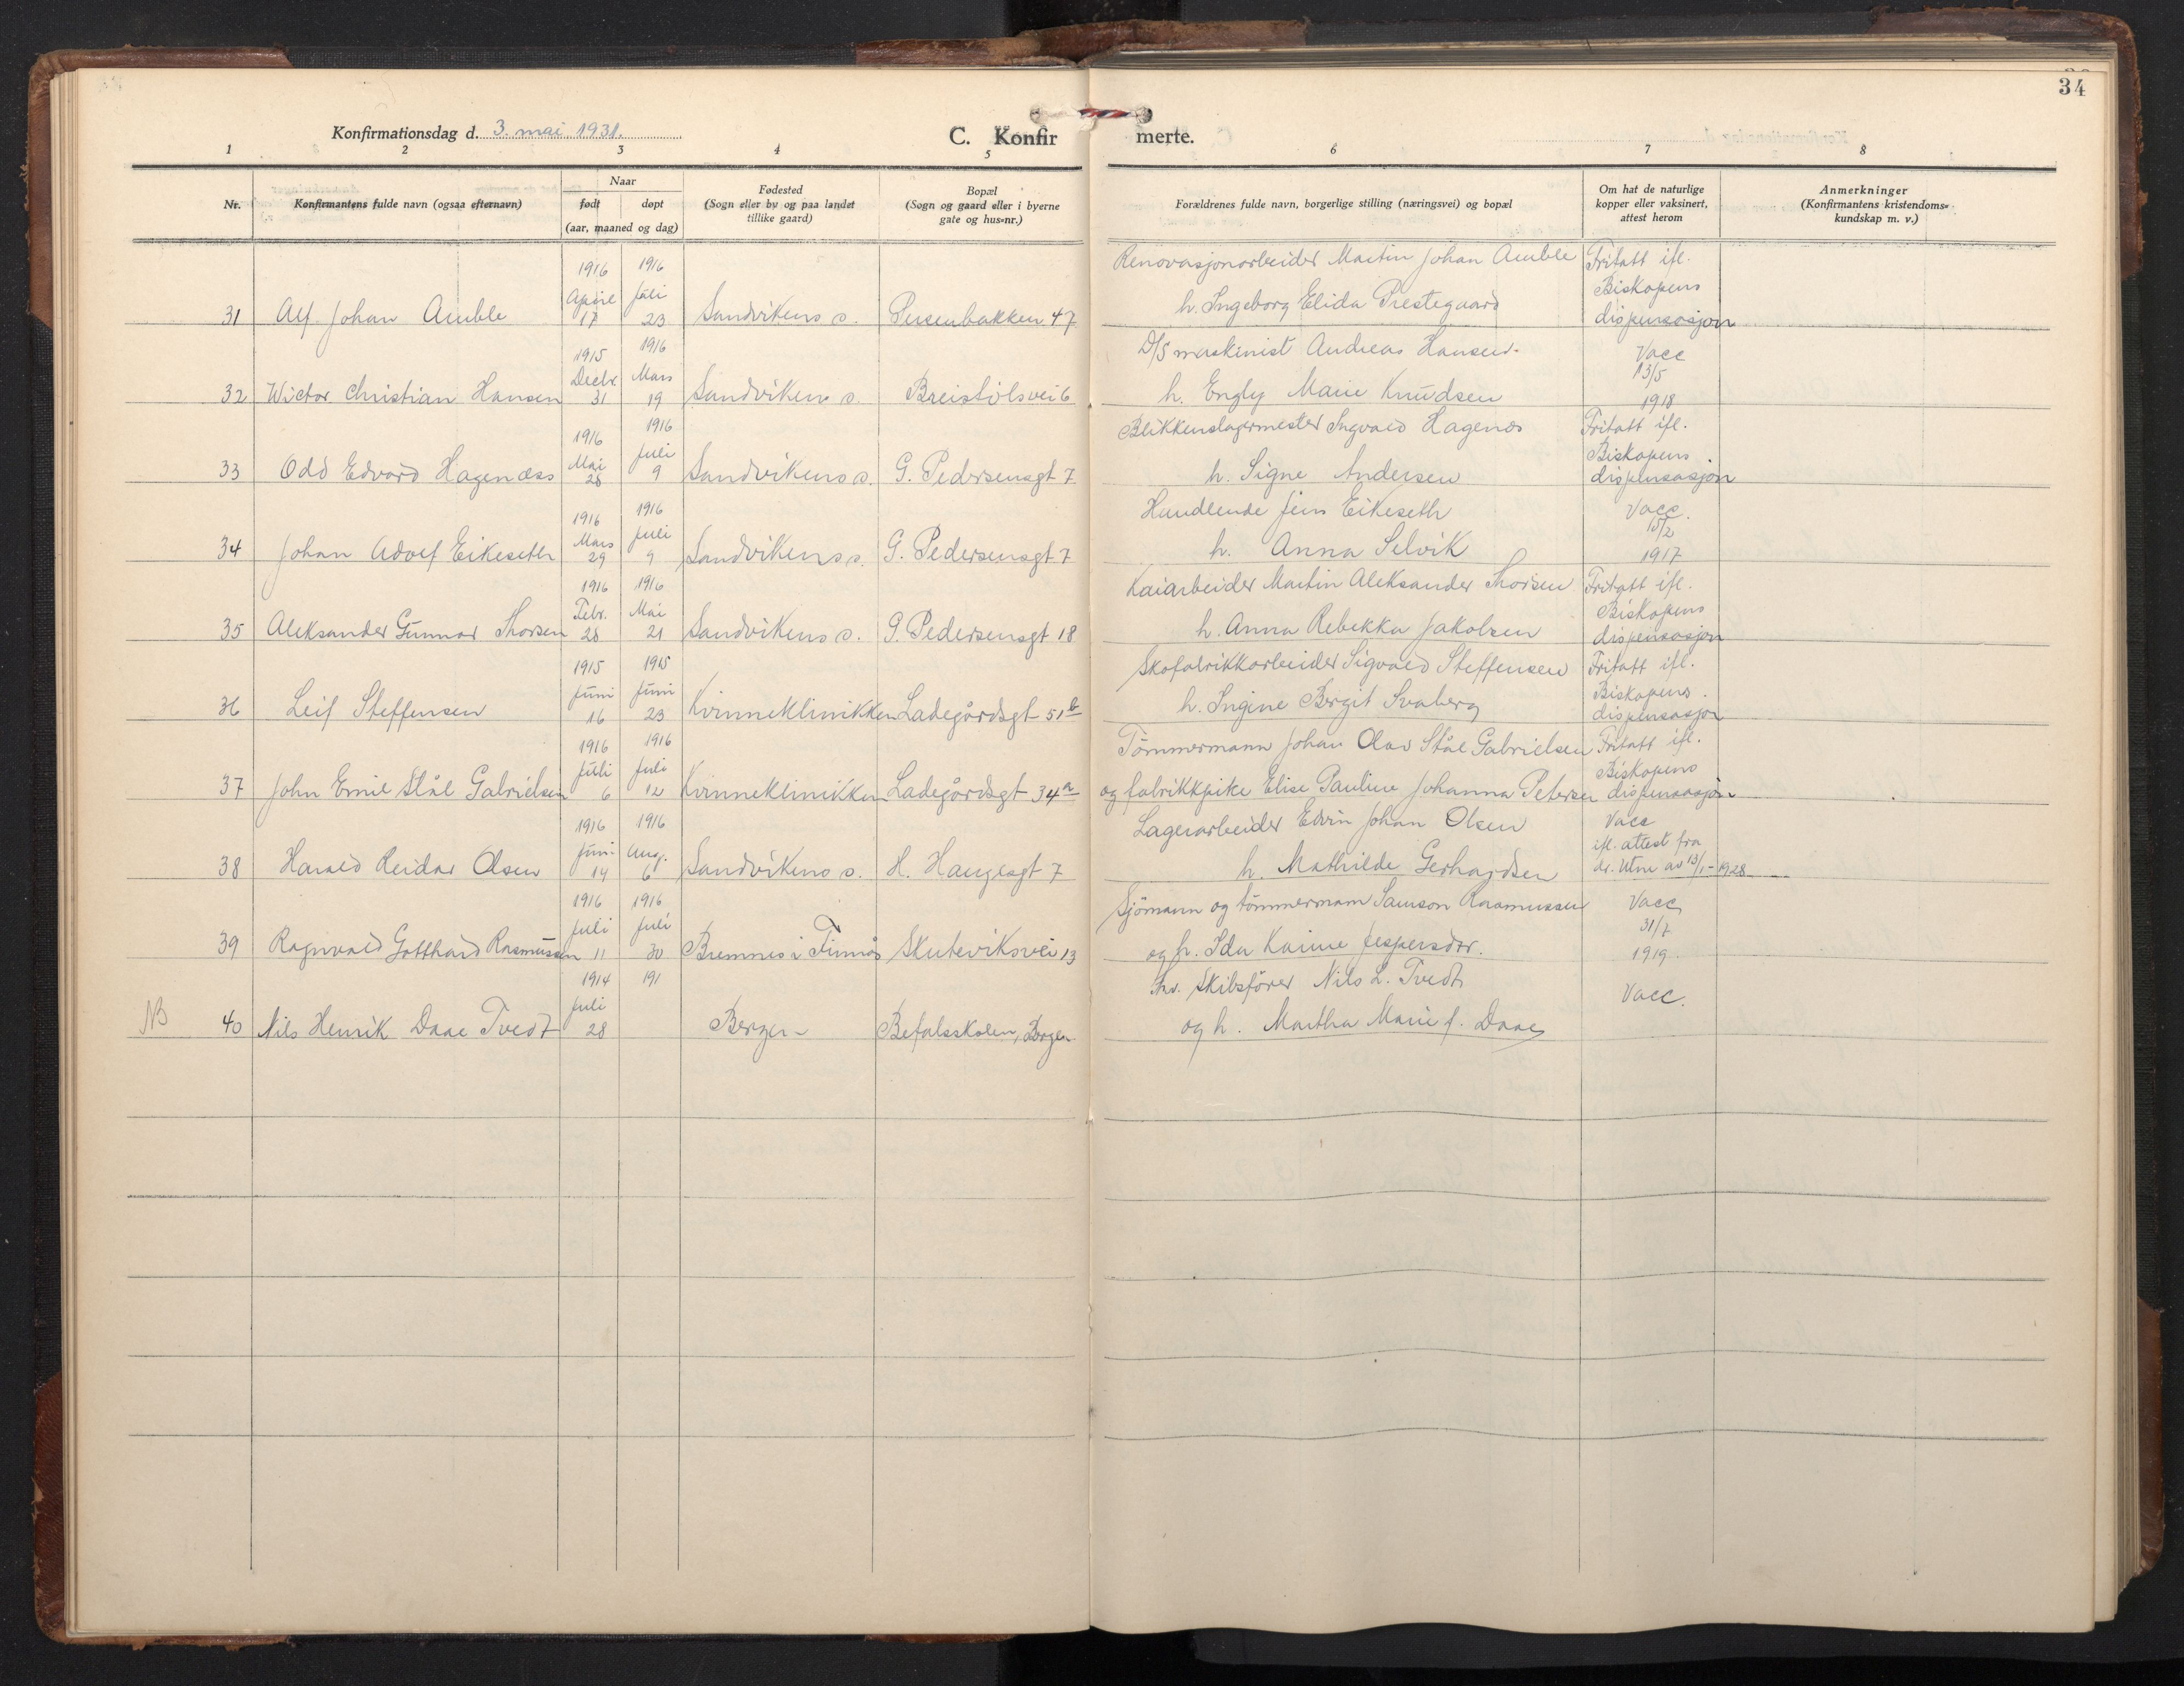 34
Konfirmationsdag d. 3. mai 1931.
C. Konfirmerte.
1 2 3 4 5 6 7 8
Nr.
Konfirmantens fulde navn (ogsaa efternavn)
Naar
født døpt
(aar, maaned og dag)
Fødested
(Sogn eller by og paa landet
tillike gaard)
Bopæl
(Sogn og gaard eller i byerne
gate og hus=nr.)
Forældrenes fulde navn, borgerlige stilling (næringsvei) og bopæl
Om hat de naturlige
kopper eller vaksinert,
attest herom
Anmerkninger
(Konfirmantens kristendoms=
kundskap m. v.)
1916 1916 Renovasjonarbeider Martin Johan Amble Fritatt ifl.
April Juli Biskopens
31 Alf Johan Amble 17 23 Sandvikens s. Persenbakken 47 h. Ingeborg Elida Prestegaard dispensasjon
1915 1916 D/S maskinist Andreas Hansen Vacc
Decbr. Mars 13/5
32 Wictor Christian Hansen 31 19 Sandvikens s. Breistölsvei 6 h. Engly Marie Knudsen 1918
1916 1916 Blikkenslagermester Ingvald Hagenæs Fritatt ifl.
Mai Juli Biskopens
33 Odd Edvard Hagenæss 28 9 Sandvikens s. G. Pedersensgt 7 h. Signe Andersen dispensasjon
1916 1916 Handlende Jens Eikeseth Vacc.
Mars Juli 15/2
34 Johan Adolf Eikeseth 29 9 Sandvikens s. G. Pedersensgt 7 h. Anna Selvik 1917
1916 1916 Kaiarbeider Martin Aleksander Thorsen Fritatt ifl.
Febr. Mai Biskopens
35 Aleksander Gunnar Thorsen 28 21 Sandvikens s. G. Pedersensgt 18 h. Anna Rebekka Jakobsen dispensasjon
1915 1915 Skofabrikkarbeider Sigvald Steffensen Fritatt ifl.
Juni Juni Biskopens
36 Leif Steffensen 16 23 Kvinneklinikken Ladegårdsgt 51b h. Ingine Bergit Svaberg dispensasjon
1916 1916 Tömmermann Johan Olav Stål Gabrielsen Fritatt ifl.
Juli Juli Biskopens
37 John Emil Stål Gabrielsen 6 12 Kvinneklinikken Ladegårdsgt 34a og fabrikkpike Elise Pauline Johanna Petersen dispensasjon
1916 1916 Lagerarbeider Edvin Johan Olsen Vacc
Juni Aug. ifl. attest fra
38 Harald Reidar Olsen 14 6 Sandvikens s. H. Haugesgt 7 h. Mathilde Gerhardsen dr. Utne av 13/1-1928
1916 1916 Sjömann og tömmermann Samson Rasmussen Vacc
Juli Juli 31/7
39 Ragnvald Gotthard Rasmussen 11 30 Bremnes i Finnås Skuteviksvei 13 og h. Ida Karine Jespersdtr. 1919.
1914 191 Skibsförer Nils L. Tvedt Vacc.
Juli
NB 40 Nils Henrik Daae Tvedt 28 Bergen Befalsskolen, Bergen og h. Martha Marie f. Daae